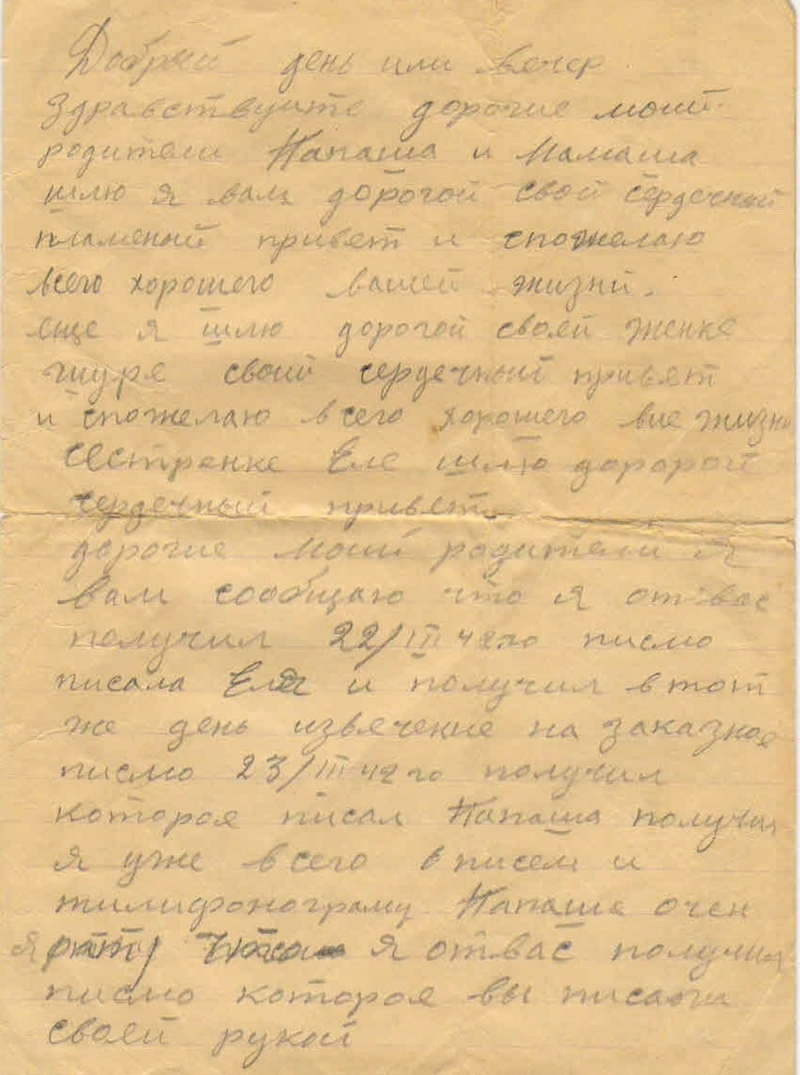 Добрый день или вечер
здравствуите дорогие мой
родители Папаша и Мамаша
шлю я вам дорогой свой сердечный
пламеный привет и спожелаю
всего хорошего вашей жизни.
еще я шлю дорогой своей женке
шуре своий сердечный привет
и спожелаю всего хорошего вие жизни
сестренке Еле шлю доророй
сердечный привет
дорогие мой родители я
вам сообщаю что я от вас
получил 22/III 42го писмо
писала Еля и получил в тот
же день извячение на заказное
писмо 23/III 42го получил
которое писал Папаша получил
я уже всего 6 писем и
тилифонограму Папаша очен
я я от вас получил
писмо которое вы писали
своей рукой